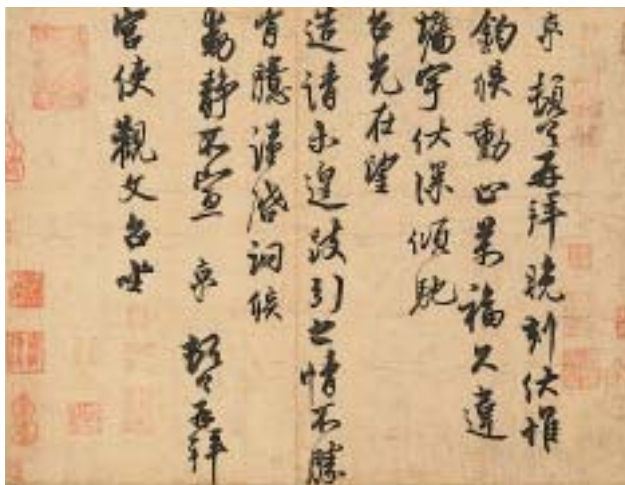 京頓首再拜晚刻伏惟
鈞候動止萬福久違
牆宇伏深傾馳
台光在望
造請未遑跂引之情不勝
胷臆謹啓詗候
動靜不宣 京 頓首再拜
宮使觀文台坐